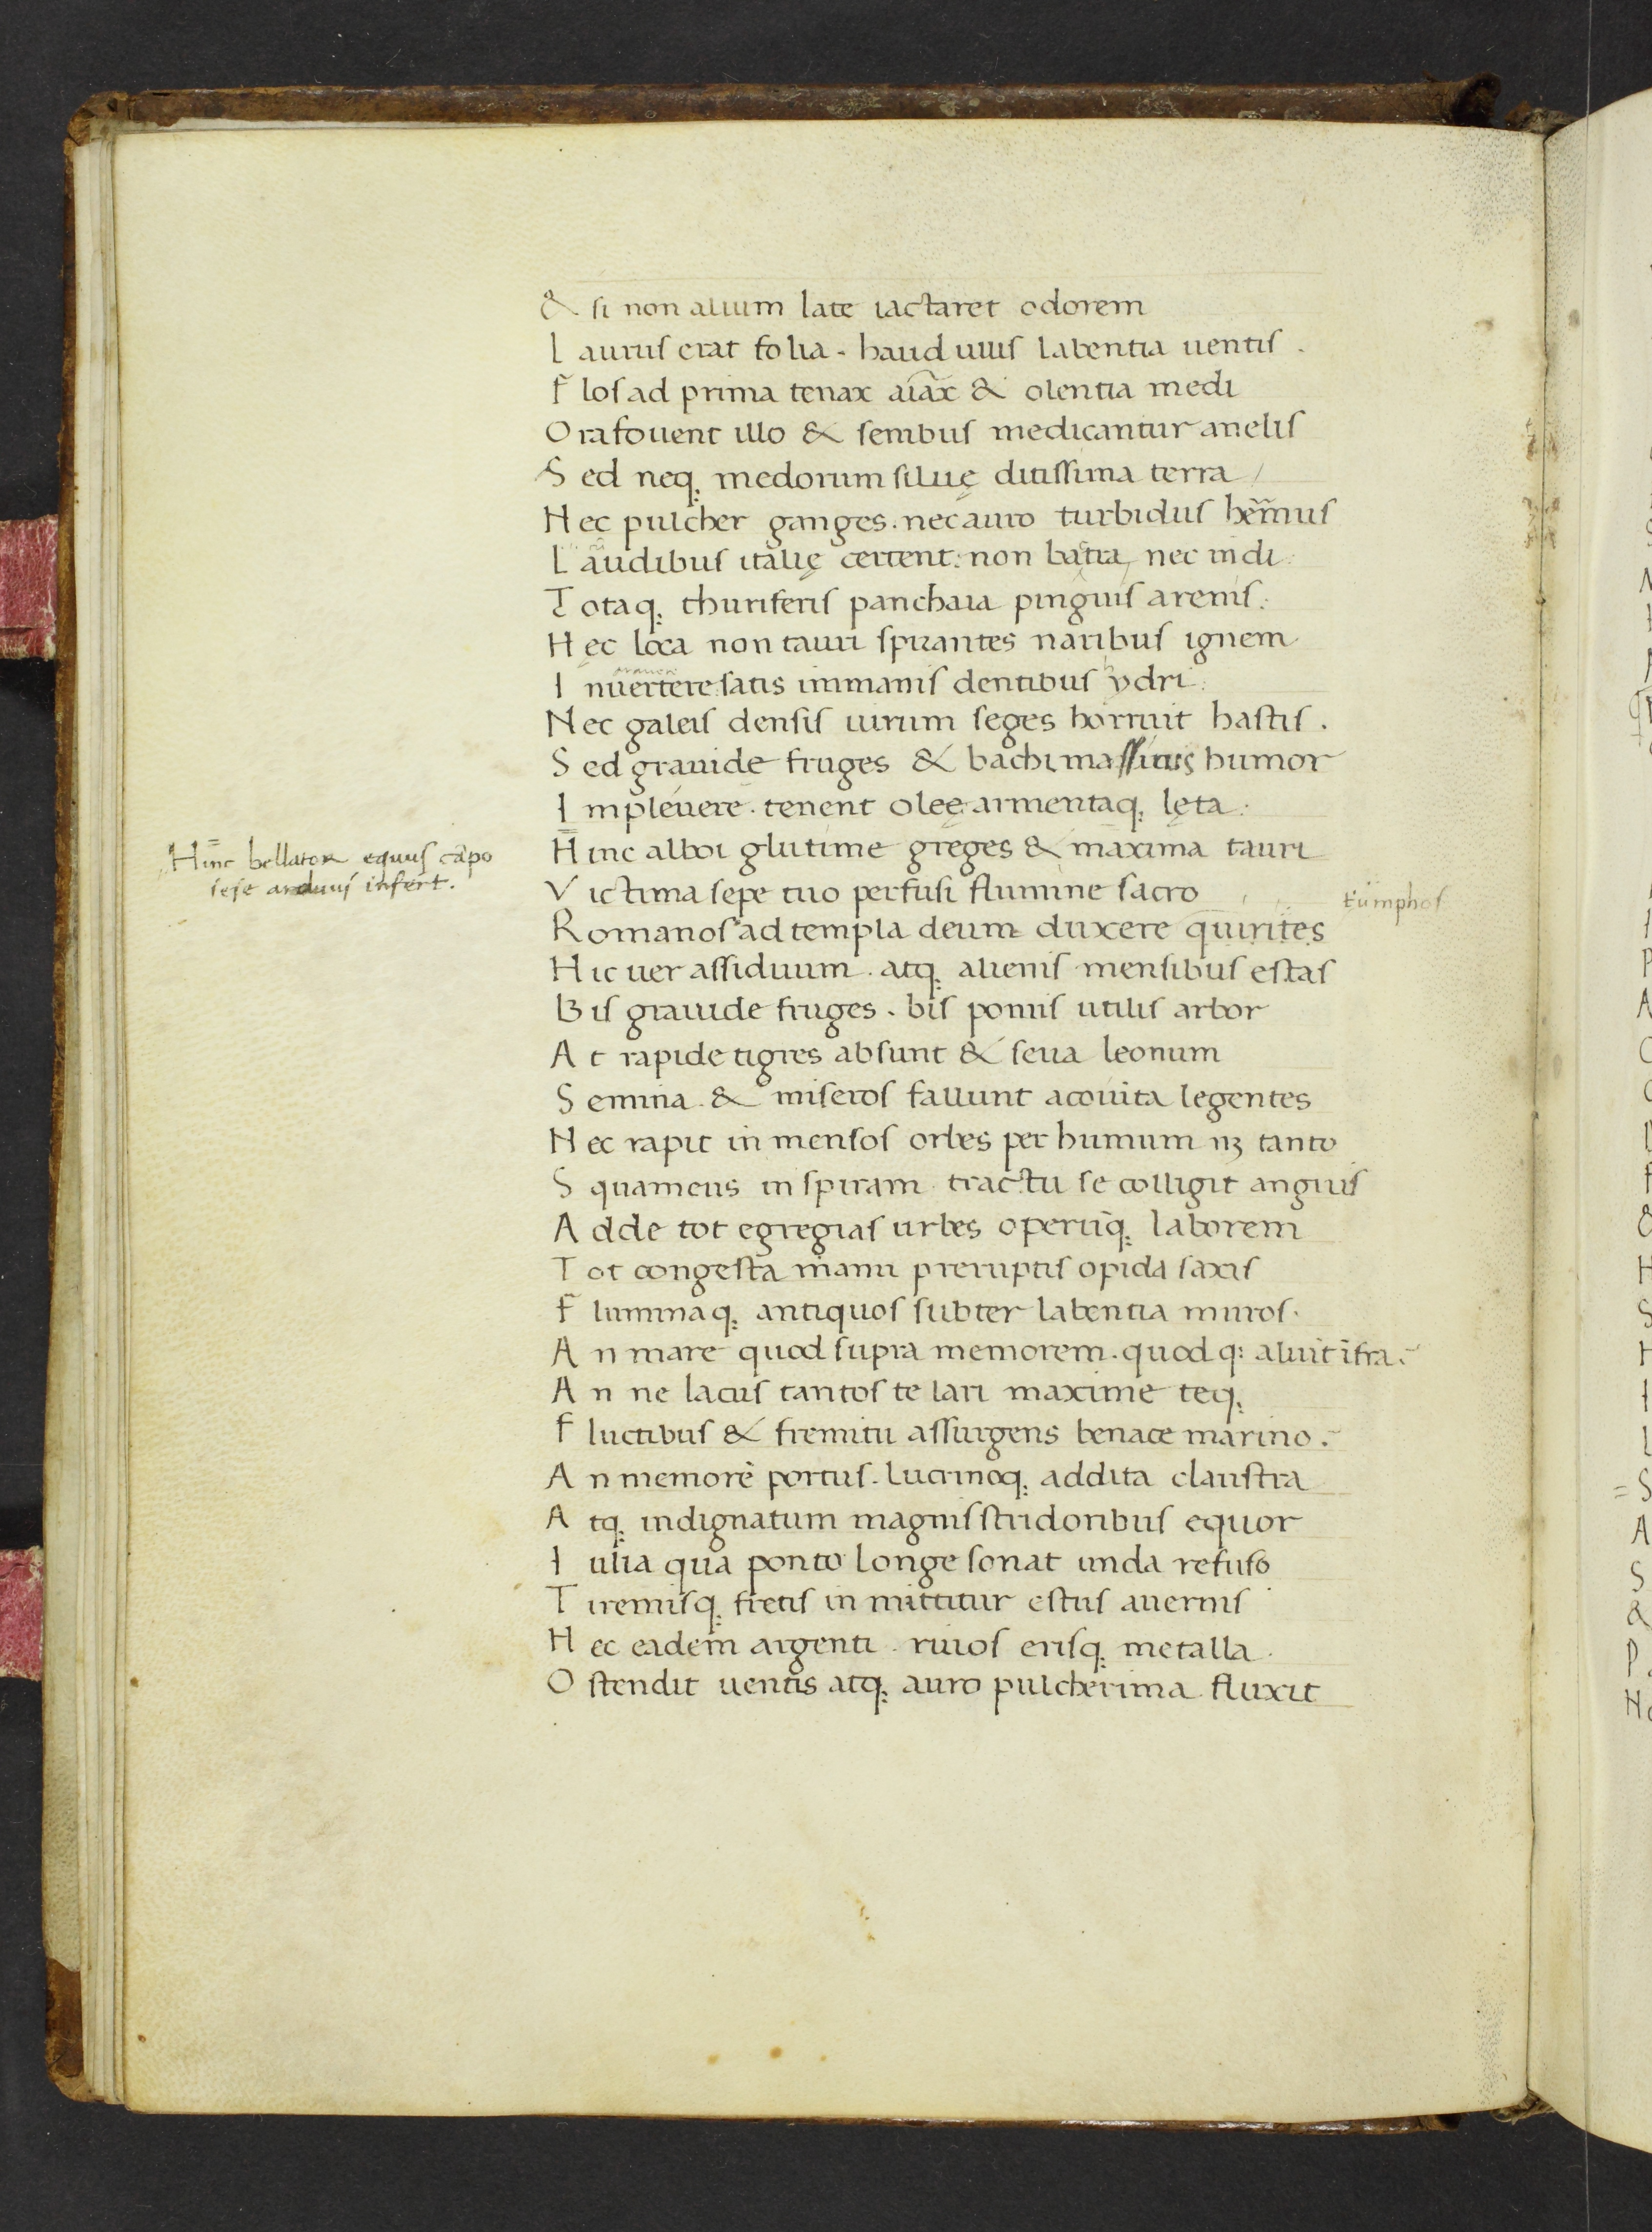 & si non alium late iactaret odorem
L aurus erat folia. haud ullis labentia uentis.
F los ad prima tenax aiax & olentia medi
O ra fouent illo & senibus medicantur anelis
S ed neq; medorum siluę ditissima terra
N ec pulcher ganges. nec auro turbidus hermus
L audibus italię certent: non batra, nec indi
T otaq; thuriferis panchaia pinguis arenis.
H ec loca non tauri spirantes naribus ignem
I nuertere satis immanis dentibus ydri
N ec galeis densis uirum seges horruit hastis.
S ed grauide fruges & bachi massicus humor
I mpleuere. tenent oleę armentaq; lęta.
Hinc bellator equus cāpo
sese arduus infert.
H inc alboi glutime greges & maxima tauri
V ictima sepe tuo perfusi flumine sacro
tūmphos
R omanos ad templa deum duxere quirites
H ic uer assiduum. atq; alienis mensibus estas
B is grauide fruges. bis pomis utilis arbor
A t rapide tigres absunt & seua leonum
S emina. & miseros fallunt aconita legentes
N ec rapit in mensos orbes per humum nȝ tanto
S quameus in spiram tractu se colligit anguis
A dde tot egregias urbes operūq; laborem
T ot congesta manu preruptis opida saxis
F luminaq; antiquos subter labentia muros.
A n mare quod supra memorem. quod q; aluit īfra.
A n ne lacus tantos te lari maxime teq;
F luctibus & fremitu assurgens benace marino.
A n memorē portus. lucrinoq; addita claustra
A tq; indignatum magnis stridoribus equor
I ulia qua ponto longe sonat unda refuso
T iremisq; fretis in mittitur estus auernis
H ec eadem argenti riuos erisq; metalla.
O stendit uentis atq; auro pulcherima fluxit